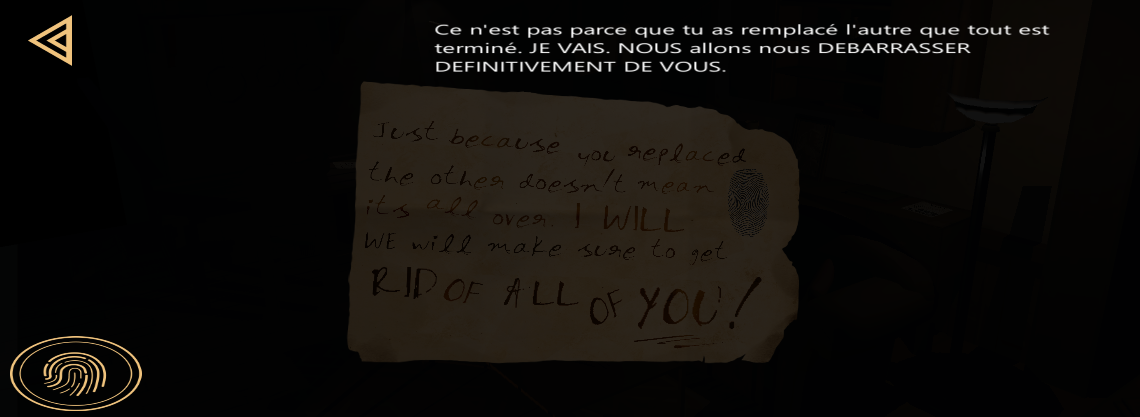 Ce n'est pas parce que tu as remplacé l'autre que tout est
terminé. JE VAIS. NOUS allons nous DEBARRASSER
DEFINITIVEMENT DE VOUS.
Just because you replaced
the other doesn't mean
its all over. I WILL
WE will make sure to get
RID OF ALL OF YOU!